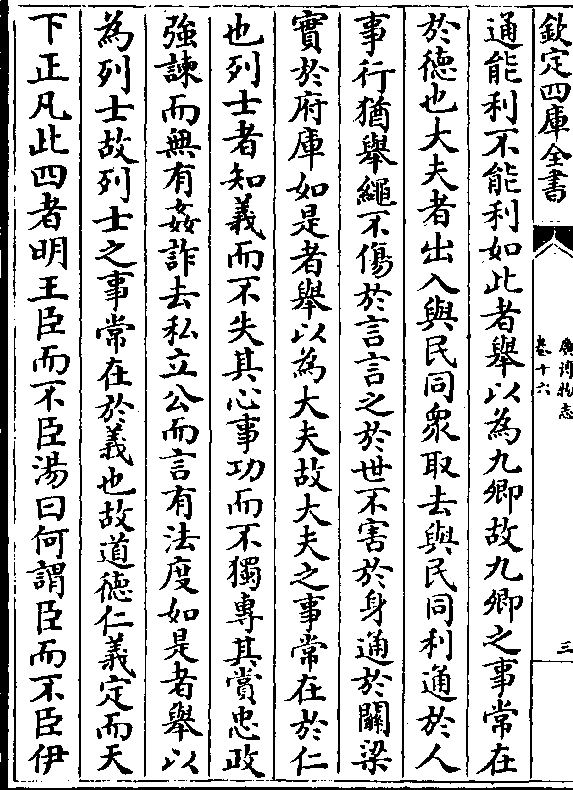 欽定四庫全書
廣博物志
卷十六
三
通能利不能利如此者舉以為九卿故九卿之事常在
於徳也大夫者出入與民同衆取去與民同利通於人
事行猶舉繩不傷於言言之於世不害於身通於關梁
實於府庫如是者舉以為大夫故大夫之事常在於仁
也列士者知義而不失其心事功而不獨專其賞忠政
強諫而無有姦詐去私立公而言有法度如是者舉以
為列士故列士之事常在於義也故道徳仁義定而天
下正凡此四者明王臣而不臣湯曰何謂臣而不臣伊